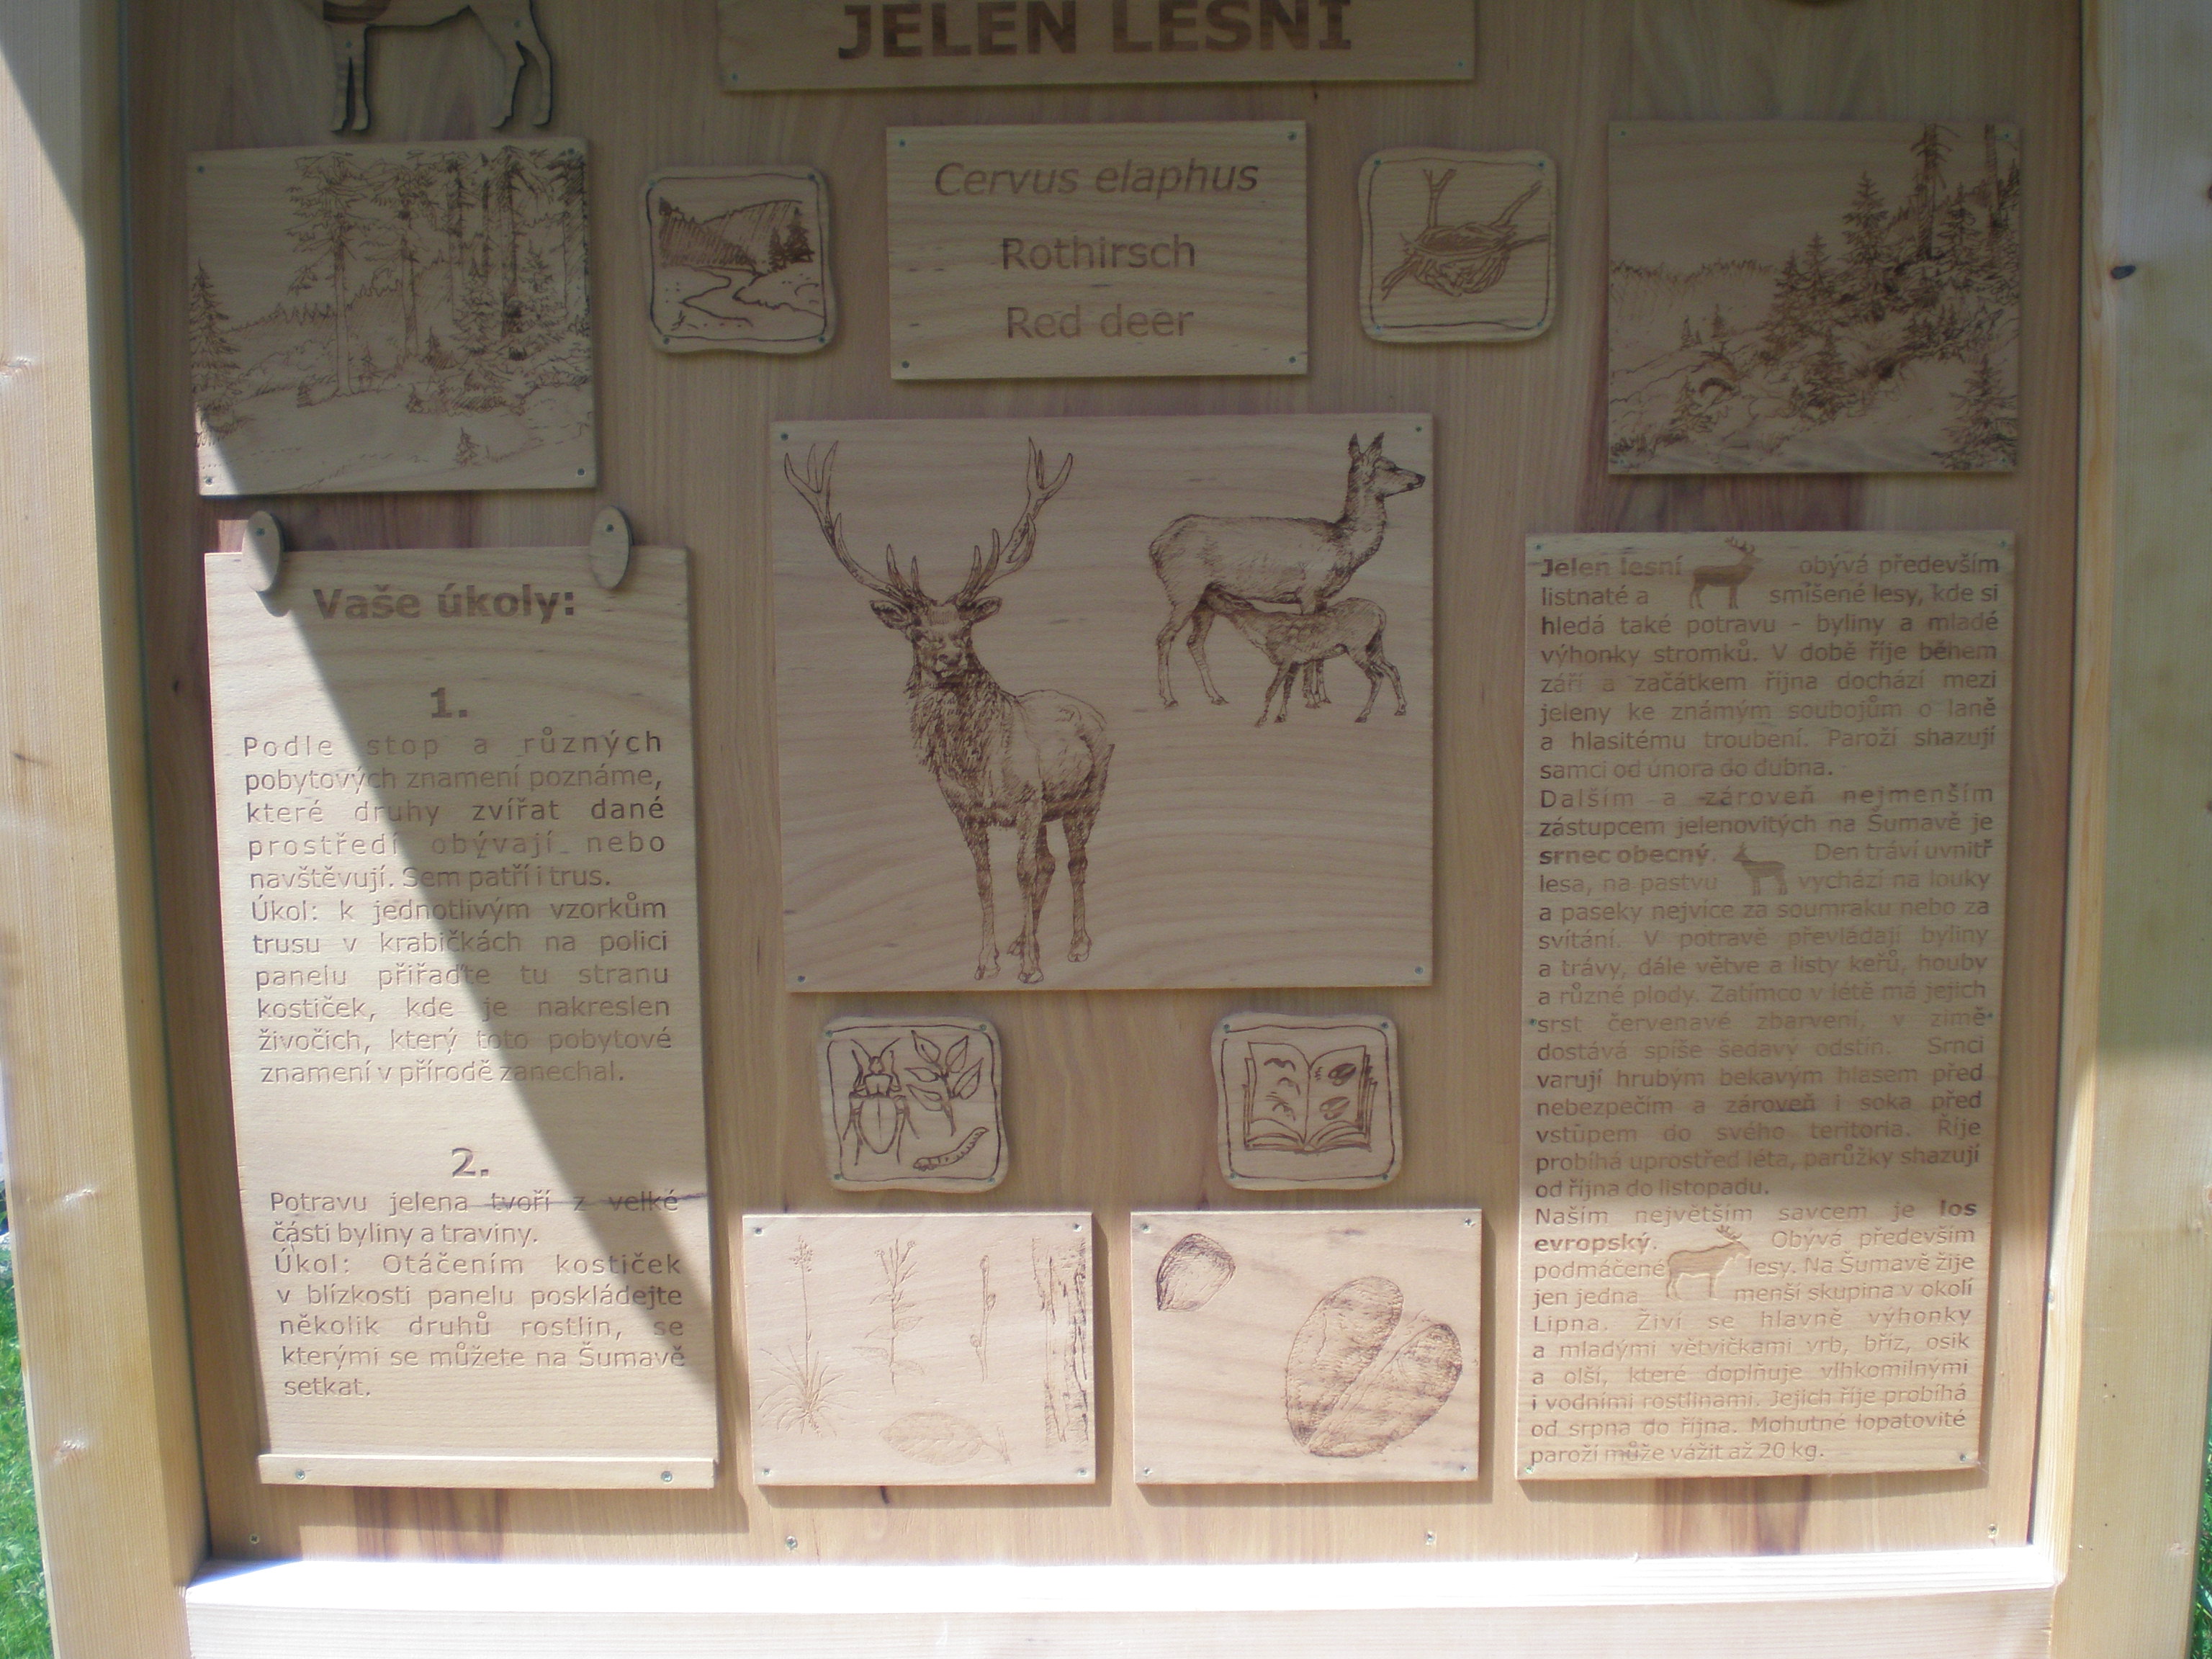 JELEN LESNÍ
Cervus elaphus
Rothirsch
Red deer
Vaše úkoly:
1.
Podle stop a různých
pobytových znamení poznáme,
které druhy zvířat dané
prostředí obývají nebo
navštěvují. Sem patří i trus.
Úkol: k jednotlivým vzorkům
trusu v krabičkách na polici
panelu přiřaďte tu stranu
kostiček, kde je nakreslen
živočich, který toto pobytové
znamení v přírodě zanechal.
2.
Potravu jelena tvoří z velké
části byliny a traviny.
Úkol: Otáčením kostiček
v blízkosti panelu poskládejte
několik druhů rostlin, se
kterými se můžete na Šumavě
setkat.
Jelen lesní obývá především
listnaté a smíšené lesy, kde si
hledá také potravu - byliny a mladé
výhonky stromků. V době říje během
září a začátkem října dochází mezi
jeleny ke známým soubojům o laně
a hlasitému troubení. Paroží shazují
samci od února do dubna.
Dalším a zároveň nejmenším
zástupcem jelenovitých na Šumavě je
srnec obecný. Den tráví uvnitř
lesa, na pastvu vychází na louky
a paseky nejvíce za soumraku nebo za
svítání. V potravě převládají byliny
a trávy, dále větve a listy keřů, houby
a různé plody. Zatímco v létě má jejich
srst červenavé zbarvení, v zimě
dostává spíše šedavý odstín. Srnci
varují hrubým bekavým hlasem před
nebezpečím a zároveň i soka před
vstupem do svého teritoria. Říje
probíhá uprostřed léta, parůžky shazují
od října do listopadu.
Naším největším savcem je los
evropský. Obývá především
podmáčené lesy. Na Šumavě žije
jen jedna menší skupina v okolí
Lipna. Živí se hlavně výhonky
a mladými větvičkami vrb, bříz, osik
a olší, které doplňuje vlhkomilnými
i vodními rostlinami. Jejich říje probíhá
od srpna do října. Mohutné lopatovité
paroží může vážit až 20 kg.